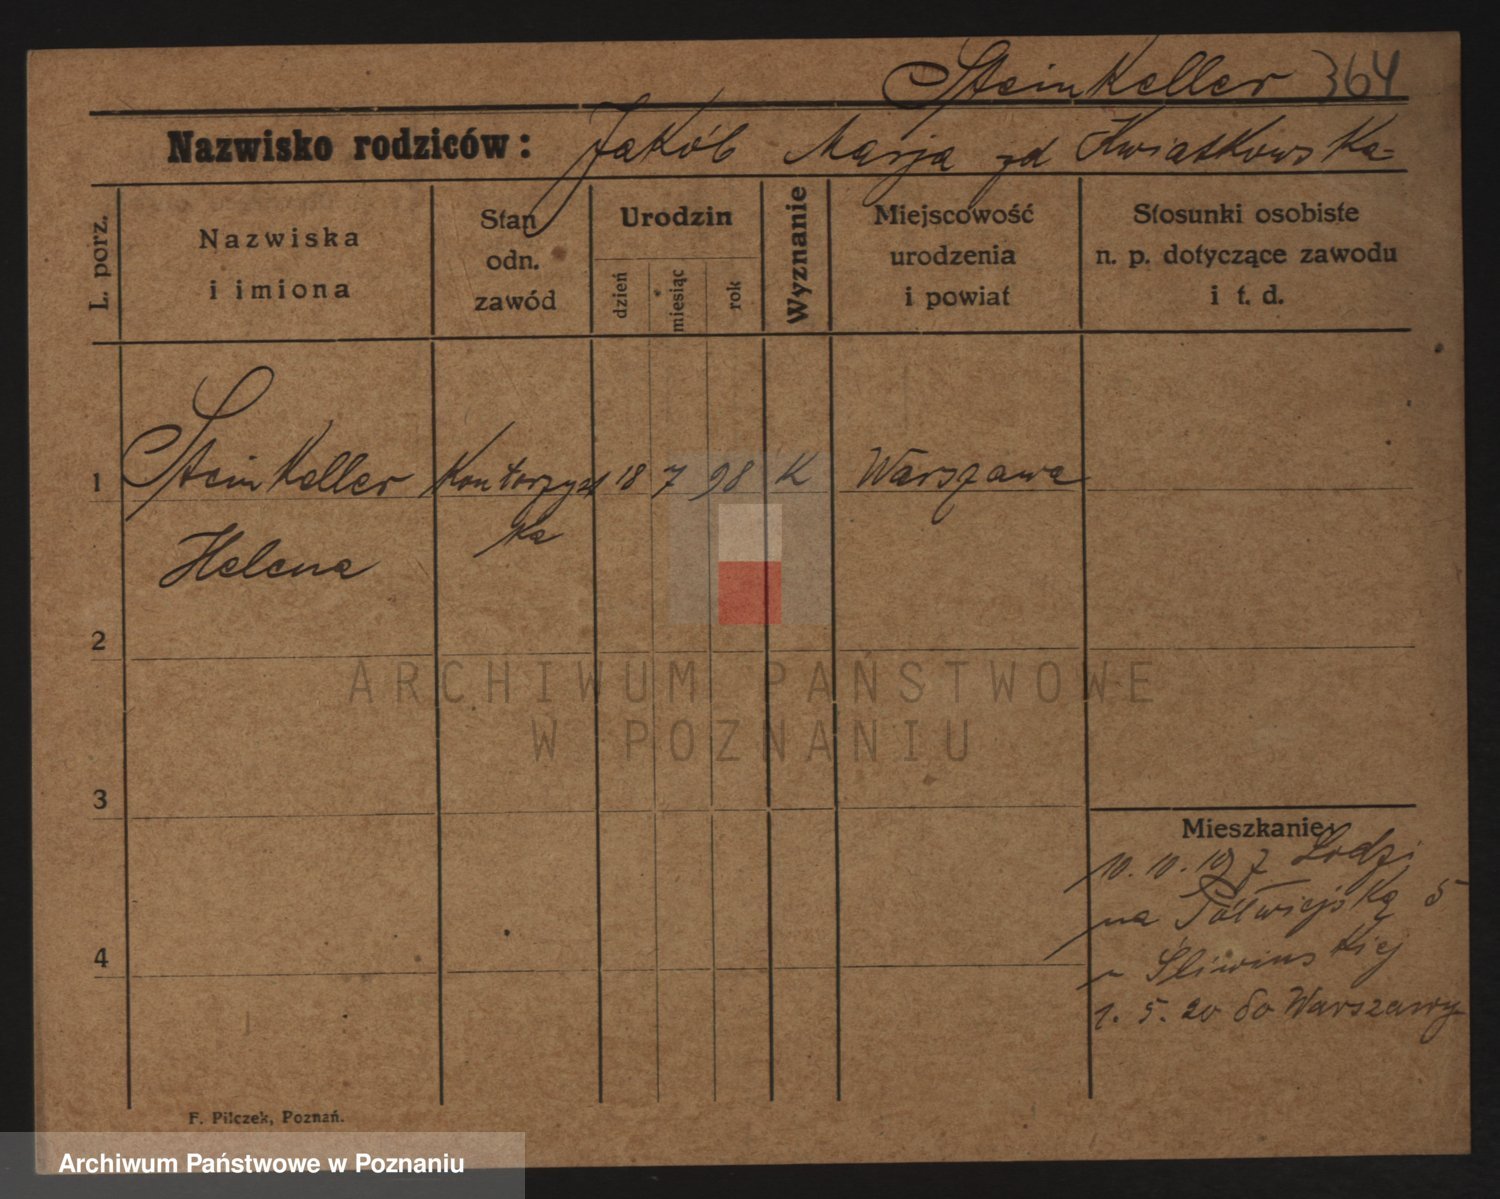 Steinkeller 364
Nazwisko rodziców: Jakób Marja zd Kwiatkowska
L. porz.
Nazwiska
i imiona
Stan
odn.
zawód
Urodzin
dzień
miesiąc
rok
Wyznanie
Miejscowość
urodzenia
i powiat
Stosunki osobiste
n. p. dotyczące zawodu
i t. d.
1 Steinkeller Kontorzyst 18 7 98 K Warszawa
ka
Helena
2
3
4
Mieszkanie:
10. 10. 19 z Łodzi
na Półwiejską 5
u Śliwinskiej
1. 5. 20 do Warszawy
F. Pilczek, Poznań.
ARCHIWUM PAŃSTWOWE
W POZNANIU
Archiwum Państwowe w Poznaniu